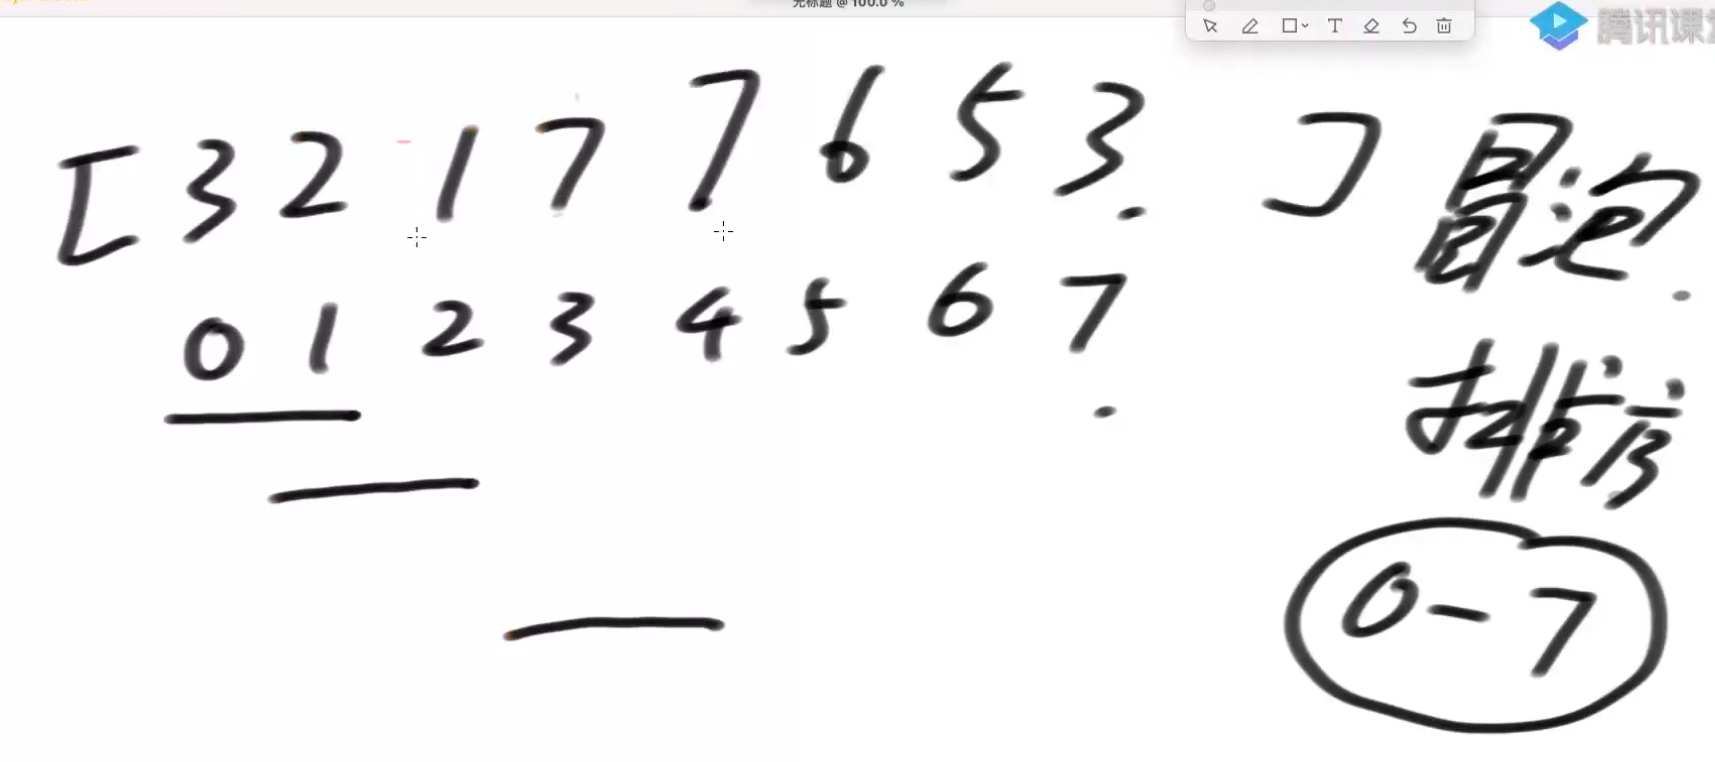 无标题 @ 100.0 %
T
腾讯课堂
[ 3 2 1 7 7 6 5 3 . ]
冒泡
0 1 2 3 4 5 6 7
排序
0-7